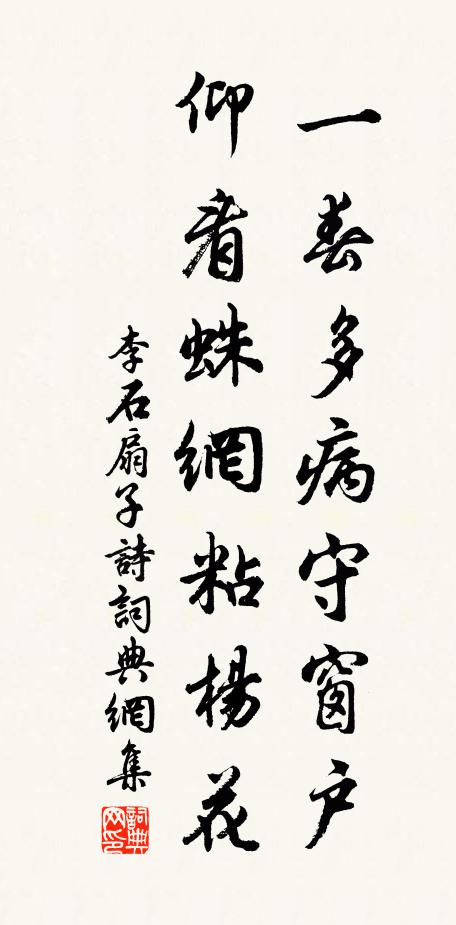 一春多病守窗户
仰看蛛網粘楊花
李石扇子詩詞典網集
詞典网印